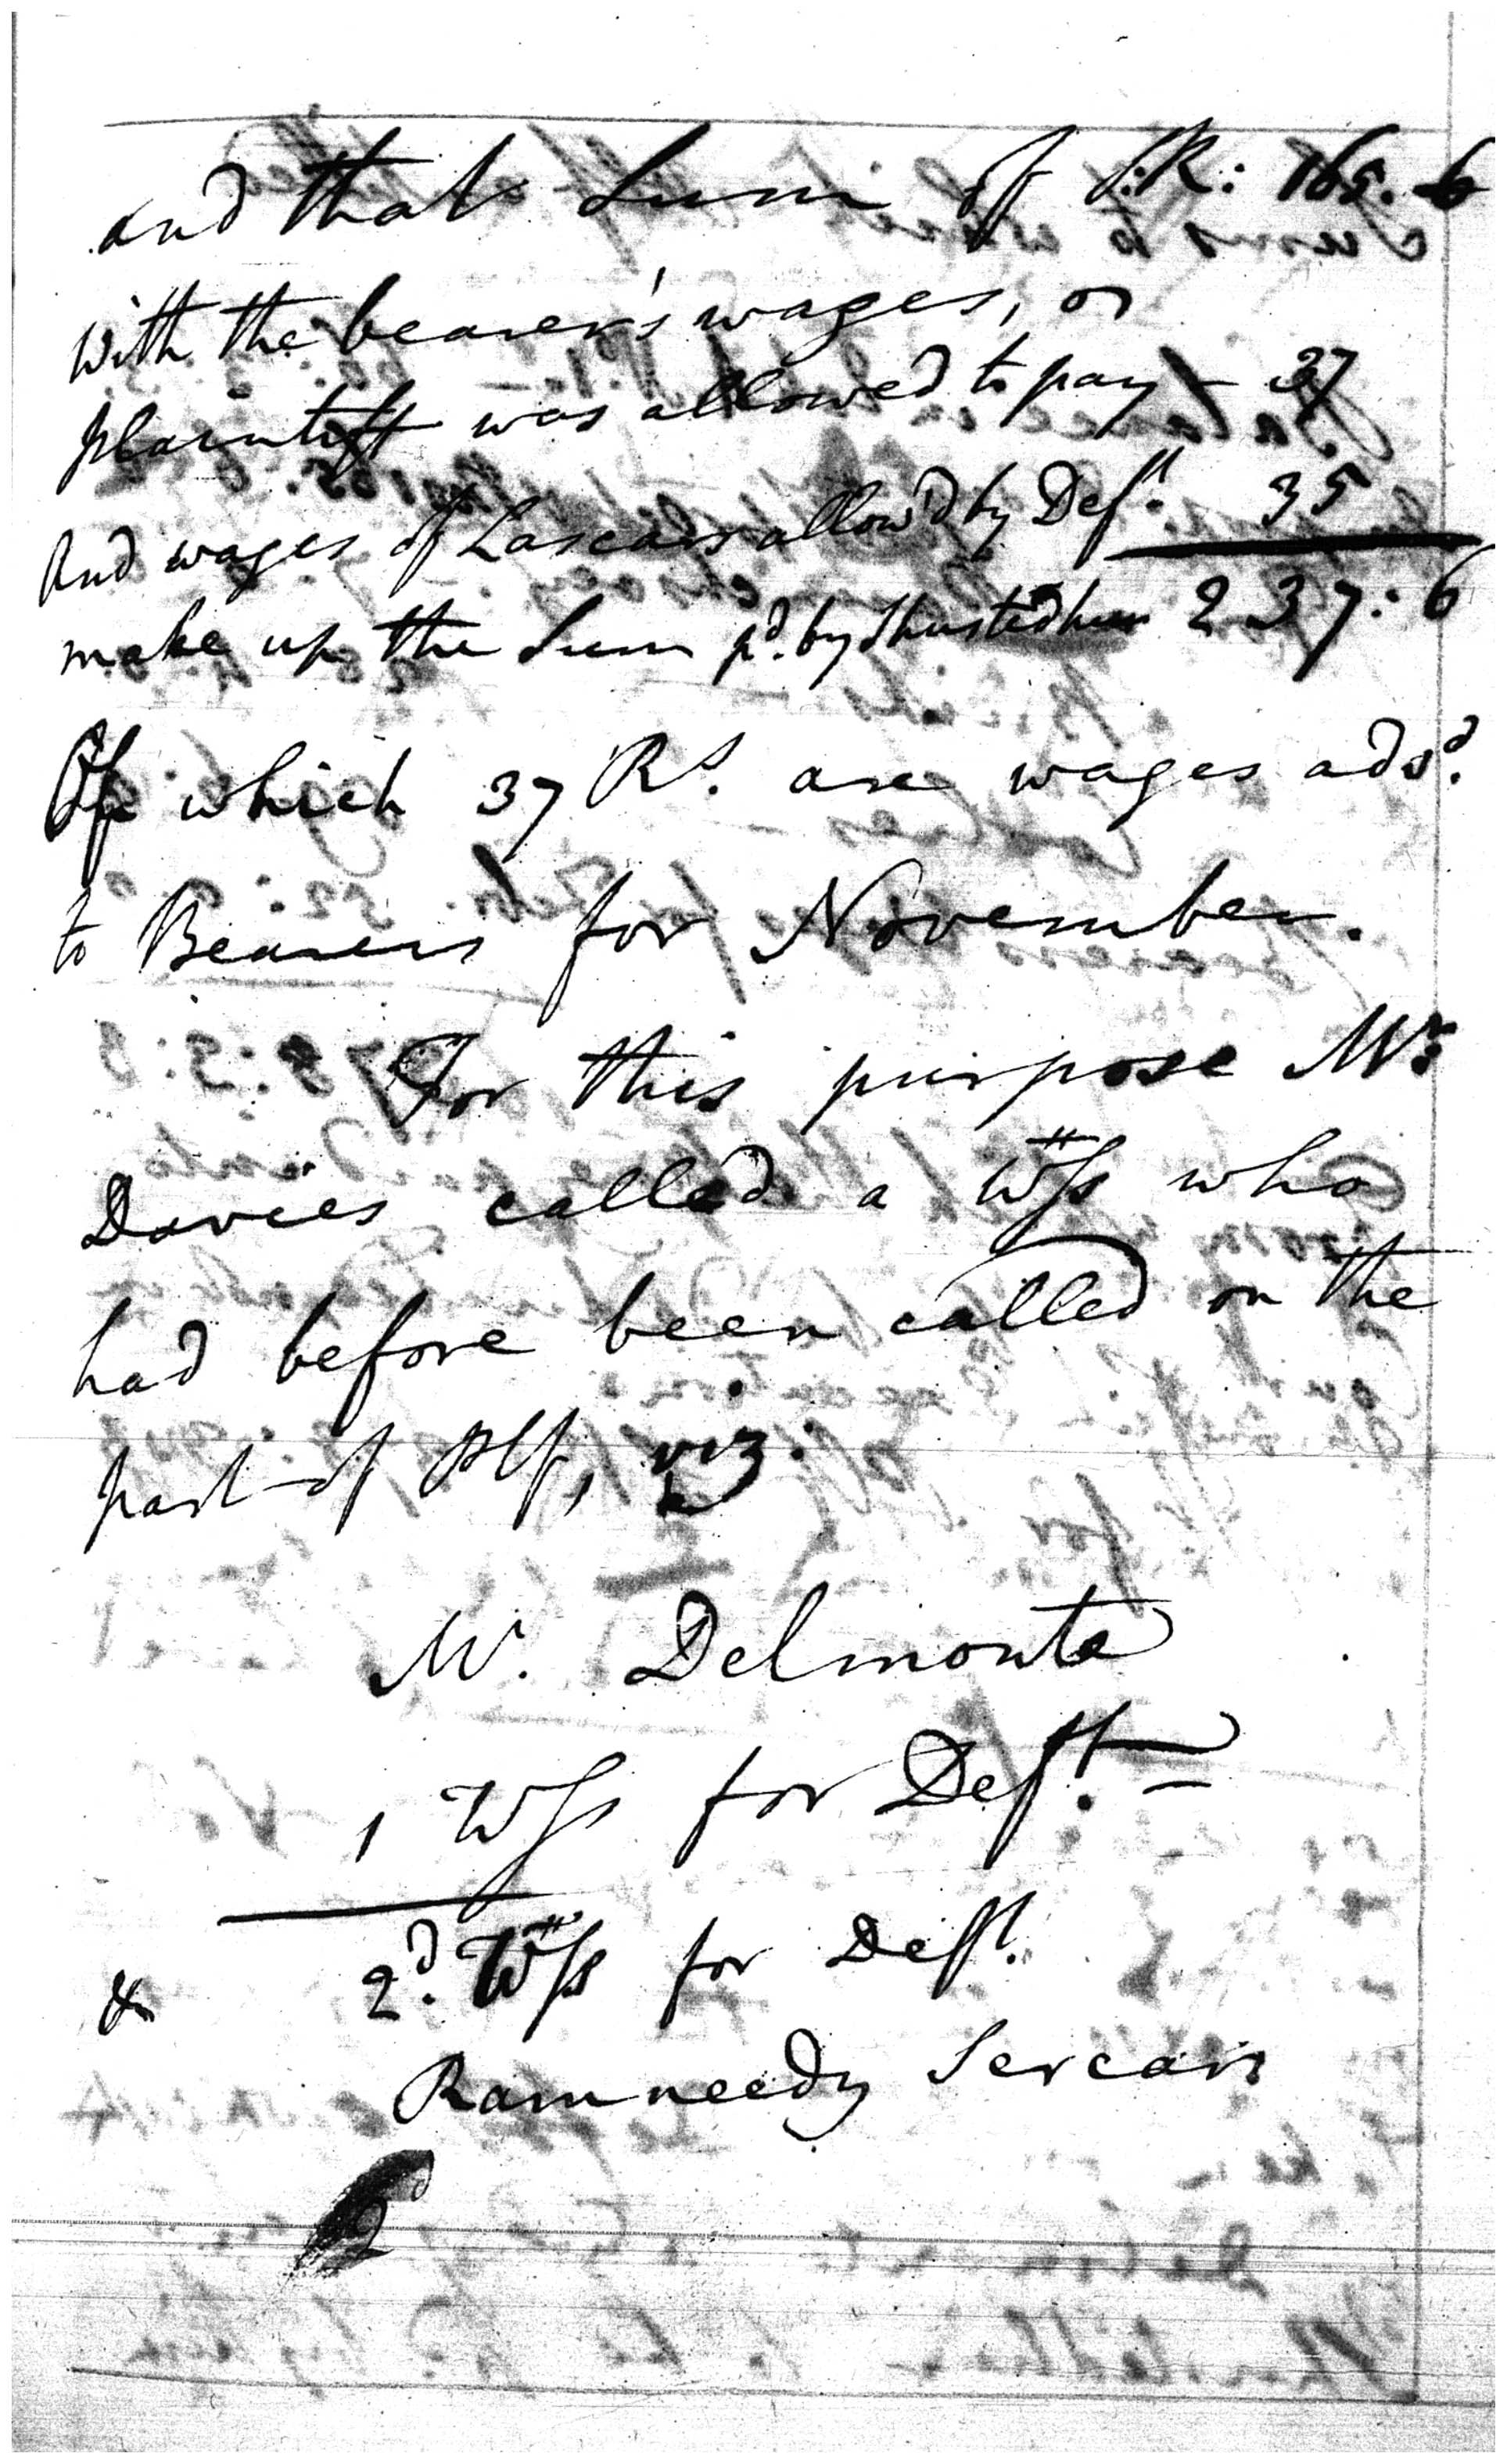 and that Sum of S.R: 165. 6
with the bearer's wages, or
plaintiff was allowed to pay — 37
And wages of Lascars allow'd by Deft. 35
make up the Sum pd. by 237:6
Of which 37 Rs. are wages add.
to Bearers for November.
For this purpose Mr.
Davies called a Wss who
had before been called on the
part of Plf, viz.
Mr. Delmonte
1 Wss for Deft. —
& 2d. Wss for Deft.
Ramneedy Sercar